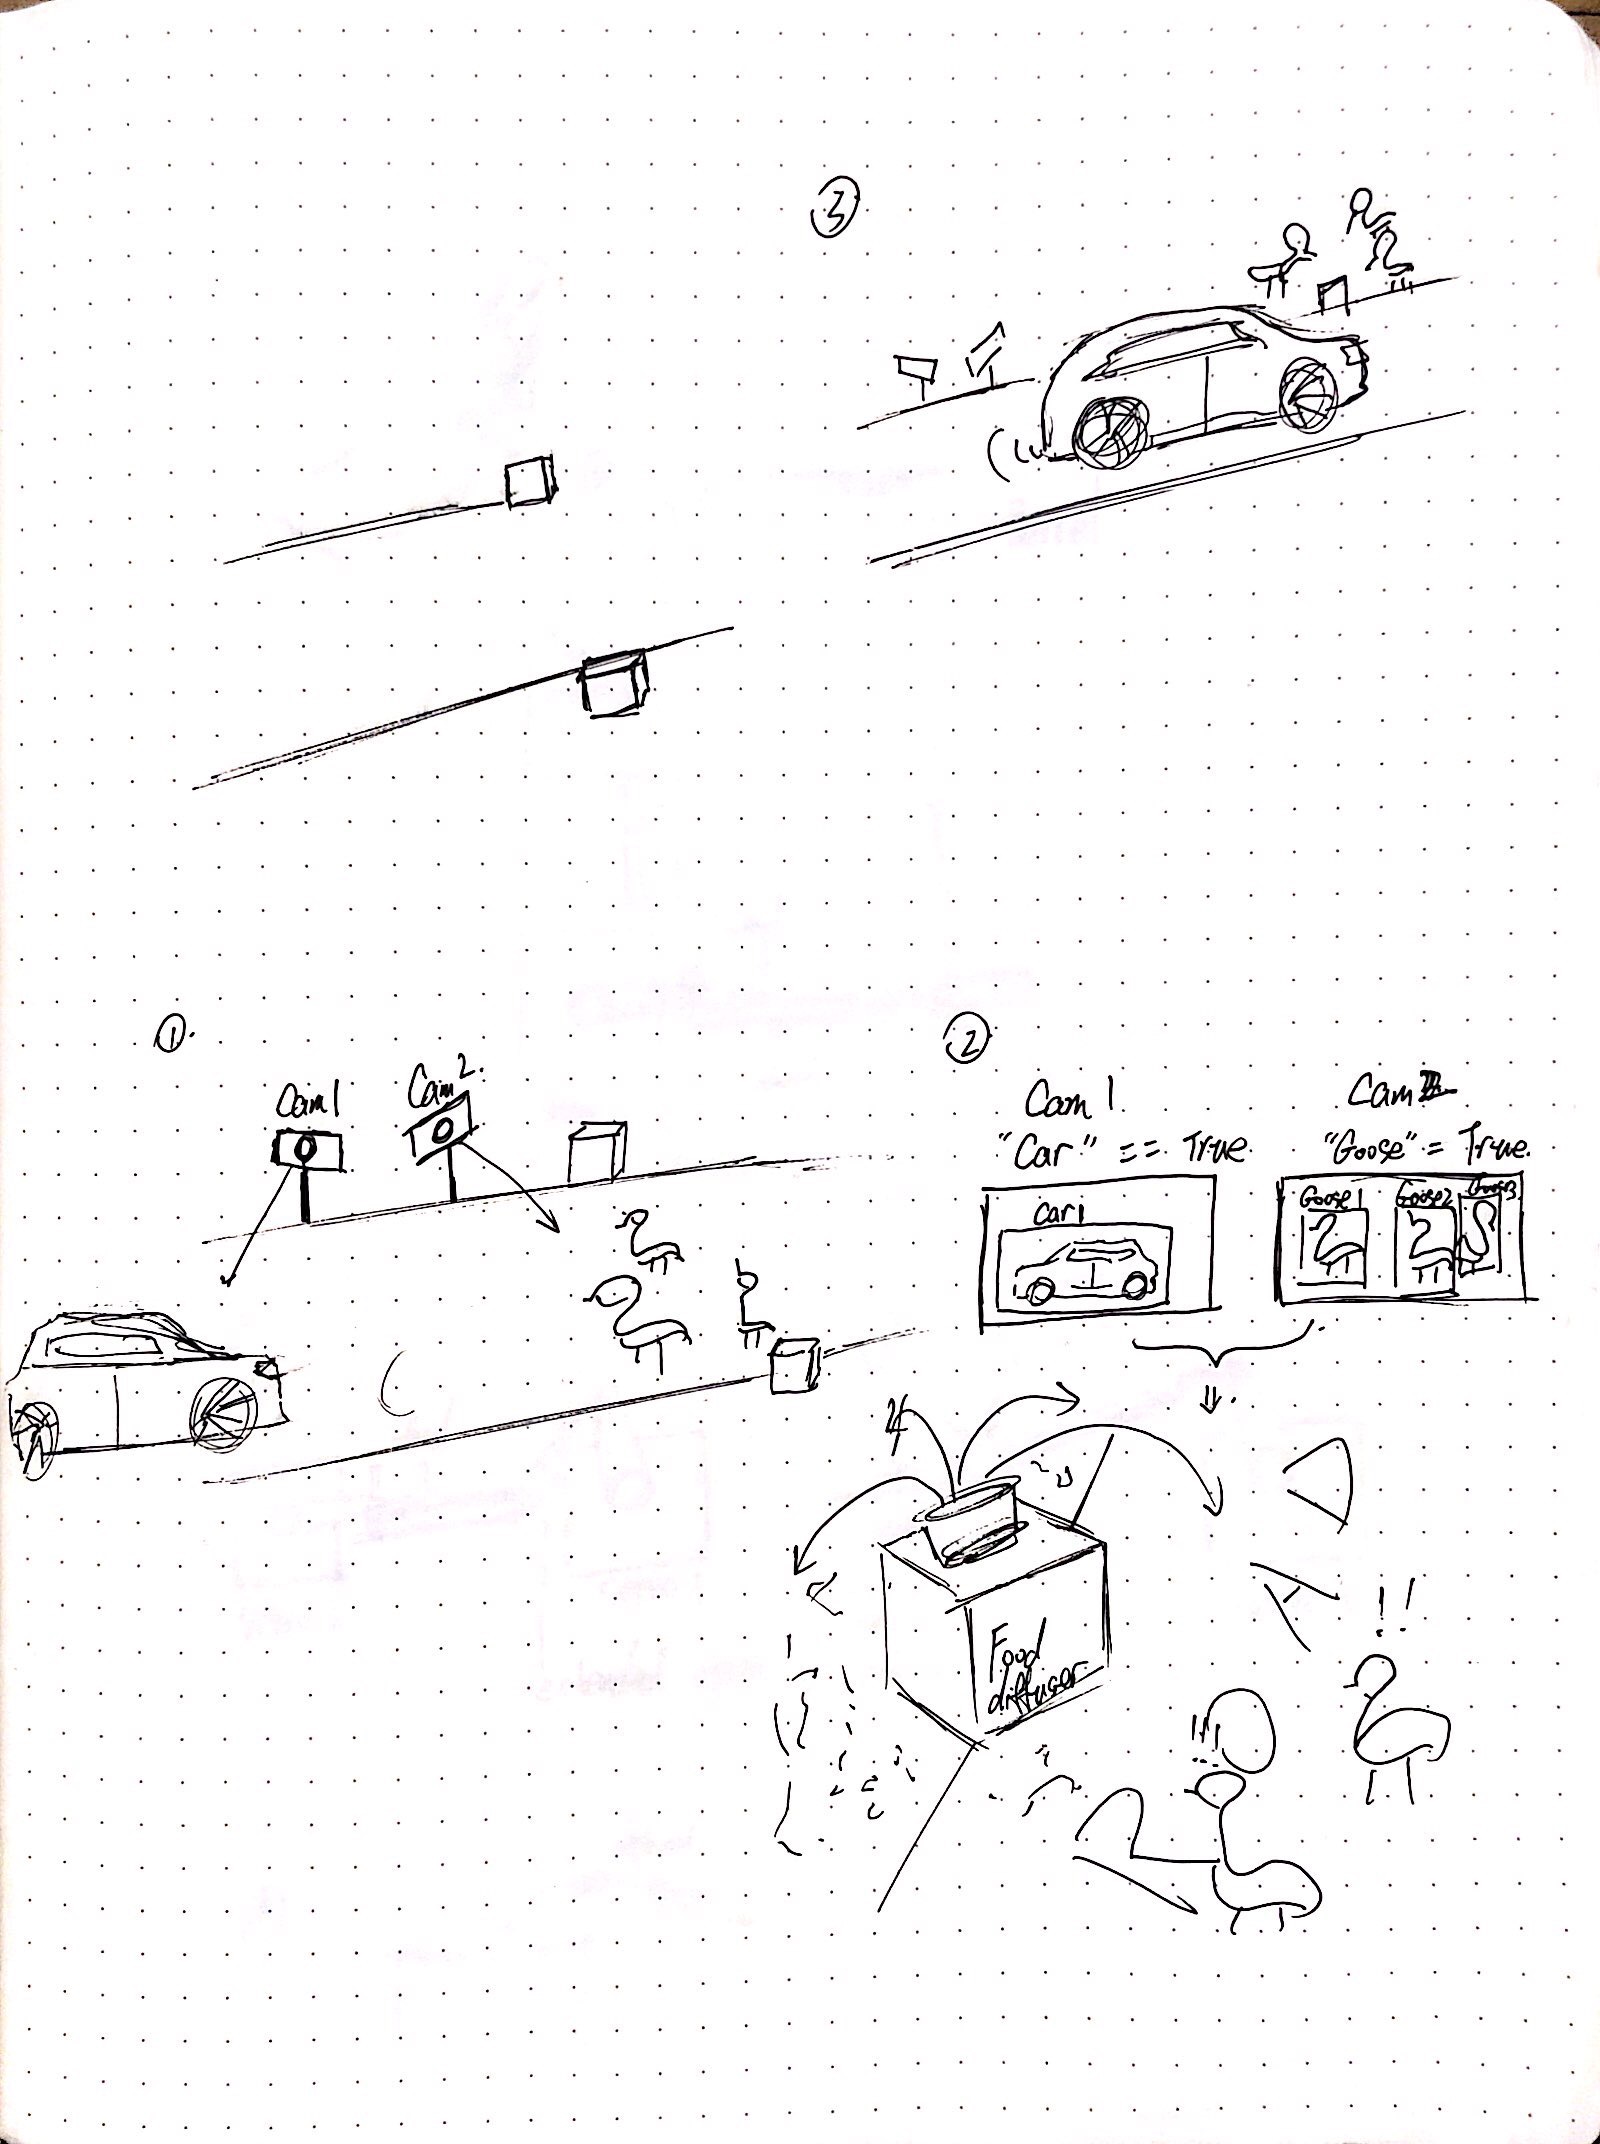 ③
①.
Cam1
Cam2.
②
Cam 1
"Car" == True
Car1
Cam
"Goose" = True.
Goose1
Goose2
Goose3
Food
diffuser
!!
!!!